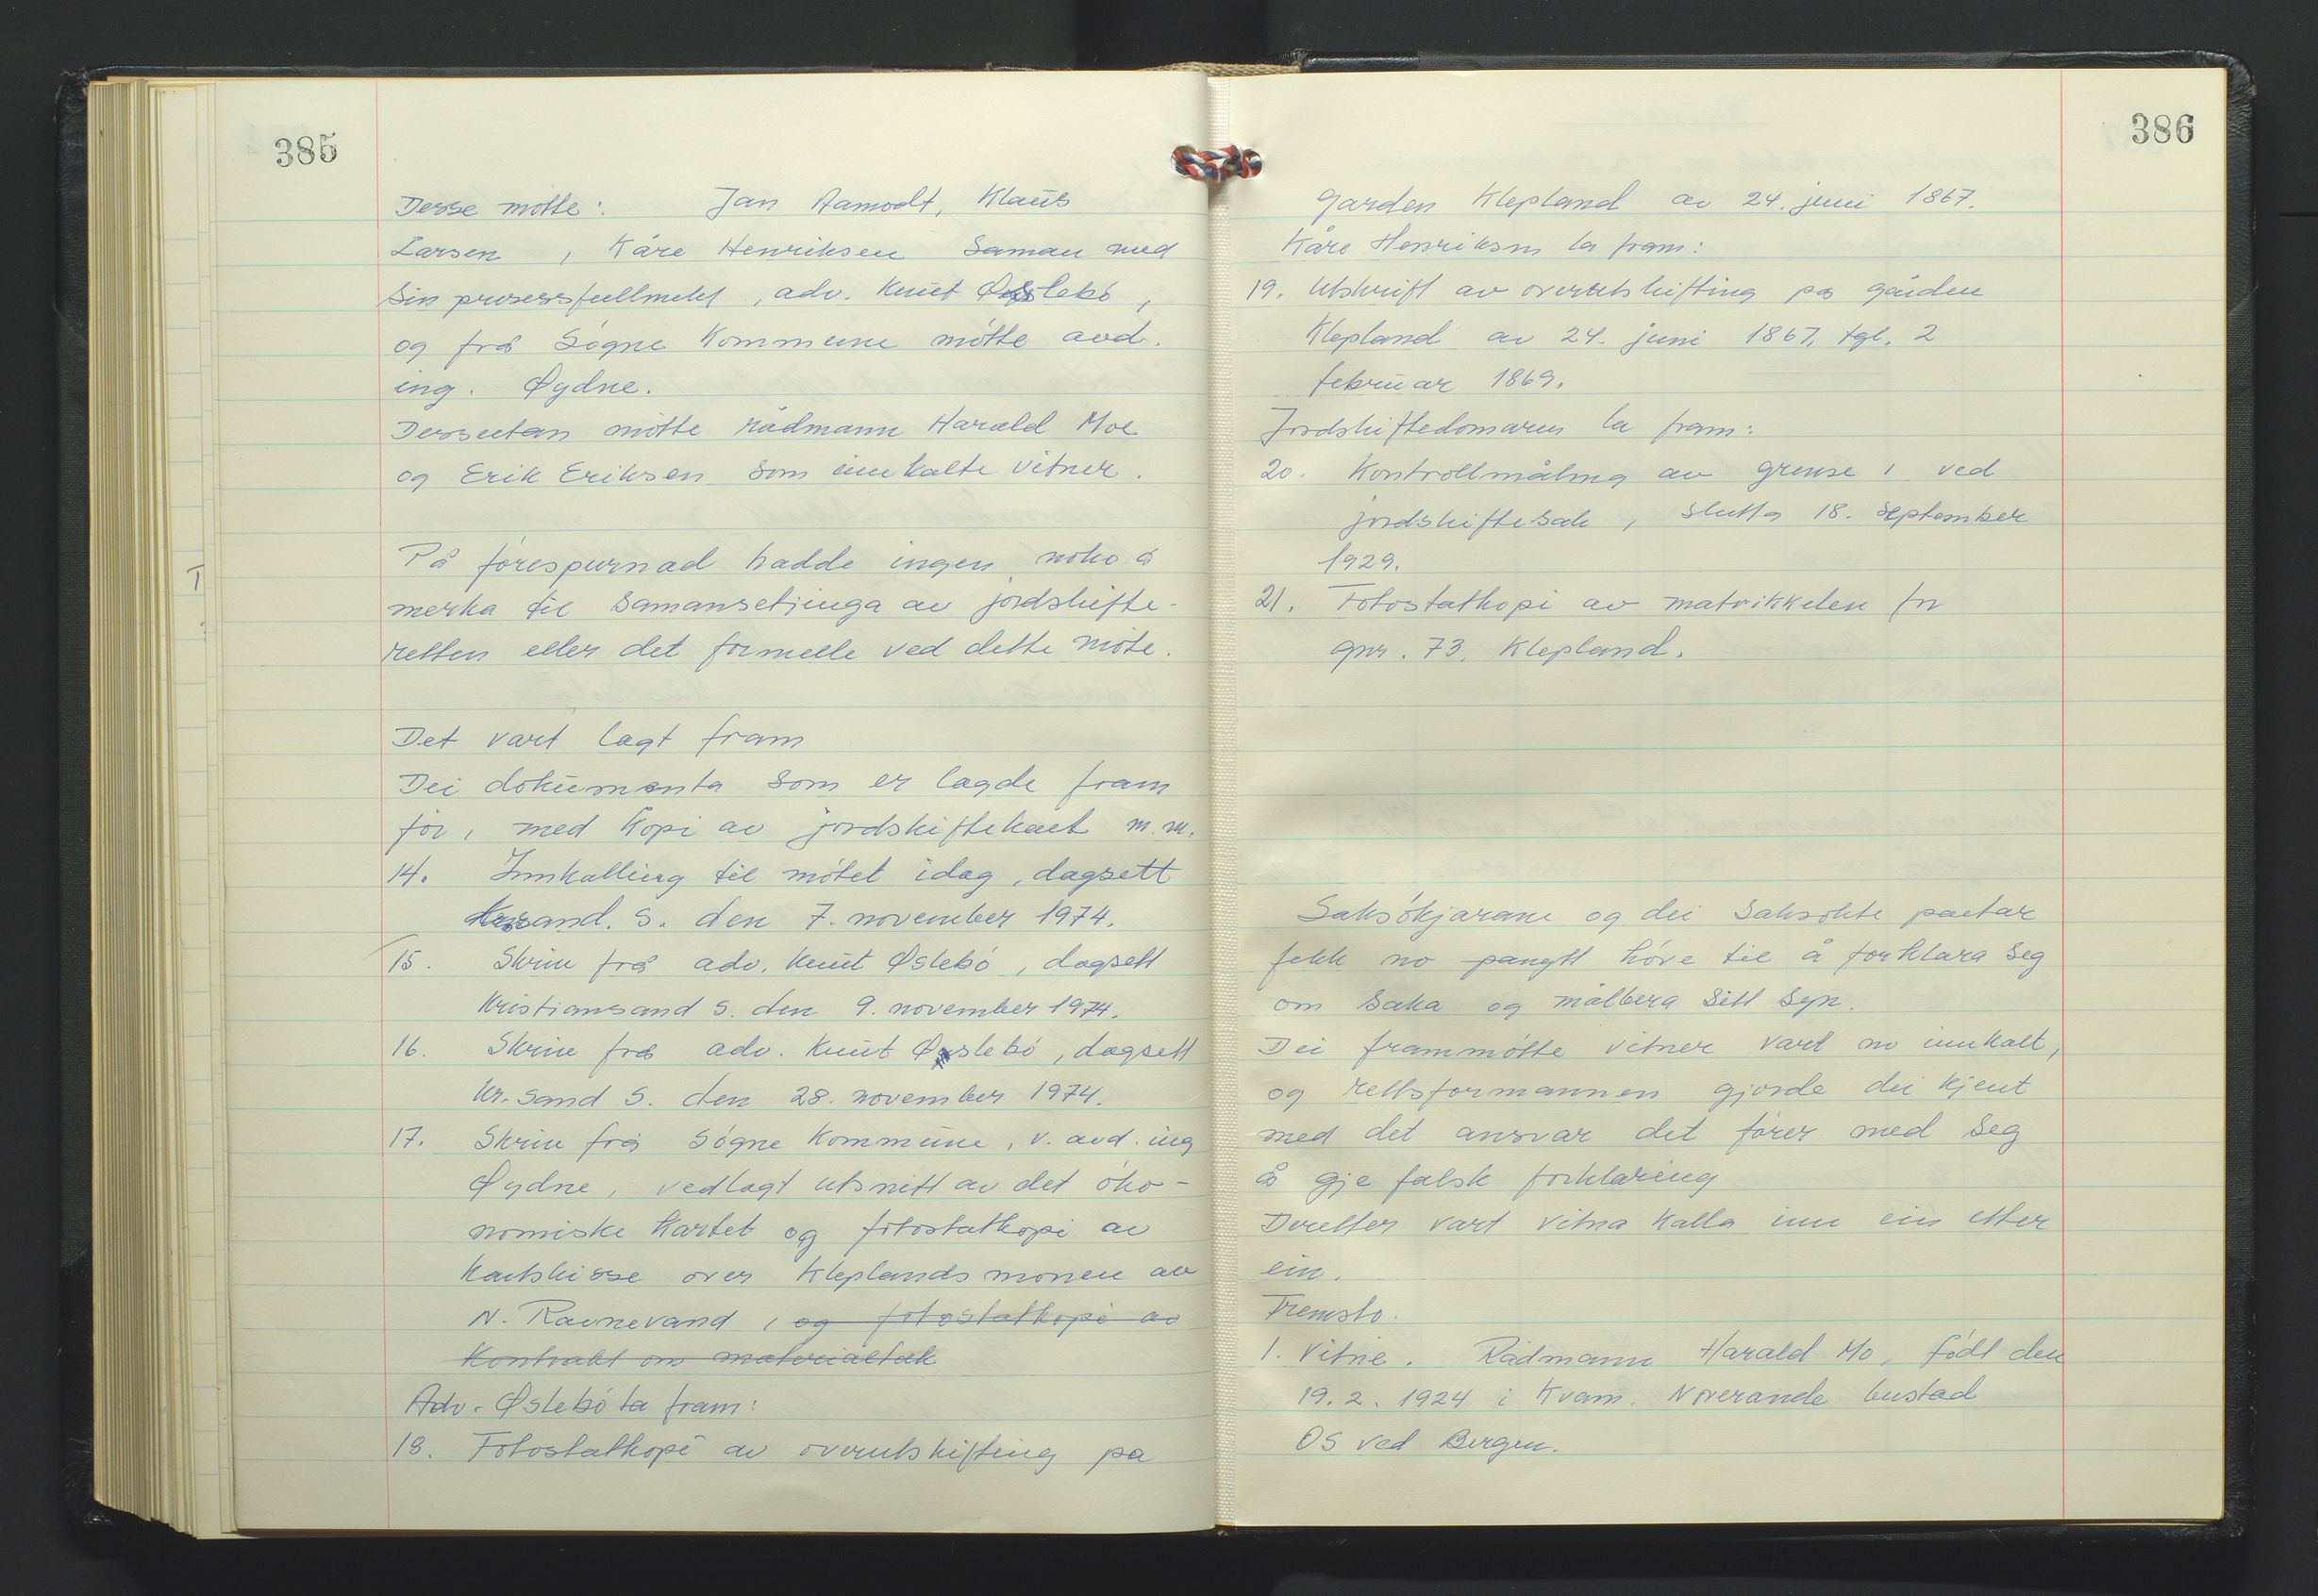 385
Desse møtte: Jan Aamodt, Klaus
Larsen, Kåre Henriksen saman med
sin prosessfullmekt, adv. Knut Øslebø,
og frå Søgne Kommune møtte avd.
ing. Øydne.
Dessutan møtte rådmann Harald Moe
og Erik Eriksen som innkalte vitner.
På førespurnad hadde ingen noko å
merka til samansetjinga av jordskifte-
retten eller det formelle ved dette møte.
Det vart lagt fram
Dei dokumenta som er lagde fram
før, med kopi av jordskiftekart m.m.
14. Innkalling til møtet idag, dagsett
Kr.sand. S. den 7. november 1974.
15. Skriv frå adv. Knut Øslebø, dagsett
Kristiansand S. den 9. november 1974.
16. Skriv frå adv. Knut Øslebø, dagsett
Kr.sand S. den 28. november 1974.
17. Skriv frå Søgne Kommune, v. avd. ing
Øydne, vedlagt utsnitt av det øko-
nomiske kartet og fotostatkopi av
kartskisse over Kleplandsmonen av
N. Ravnevand, og fotostatkopi av
Kontrakt om materialtak
Adv. Øslebø la fram:
18. Fotostatkopi av overutskifting på
T
386
garden Klepland av 24. juni 1867.
Kåre Henriksen la fram:
19. Utskrift av overutskifting på gården
Klepland av 24. juni 1867, tgl. 2
februar 1869.
Jordskiftedomaren la fram:
20. Kontrollmåling av grense i ved
jordskiftesak, slutta 18. september
1929.
21. Fotostatkopi av matrikkelen for
gnr. 73, Klepland.
Saksøkjarane og dei saksøkte partar
fekk no pånytt høve til å forklara seg
om saka og målbera sitt syn.
Dei frammøtte vitner vart no innkalt,
og rettsformannen gjorde dei kjent
med det ansvar det fører med seg
å gje falsk forklaring
Deretter vart vitna kalla inn ein etter
ein.
Fremsto.
1. Vitne. Rådmann Harald Mo, født den
19.2.1924 i Kvam. Noverande bustad
Os ved Bergen.